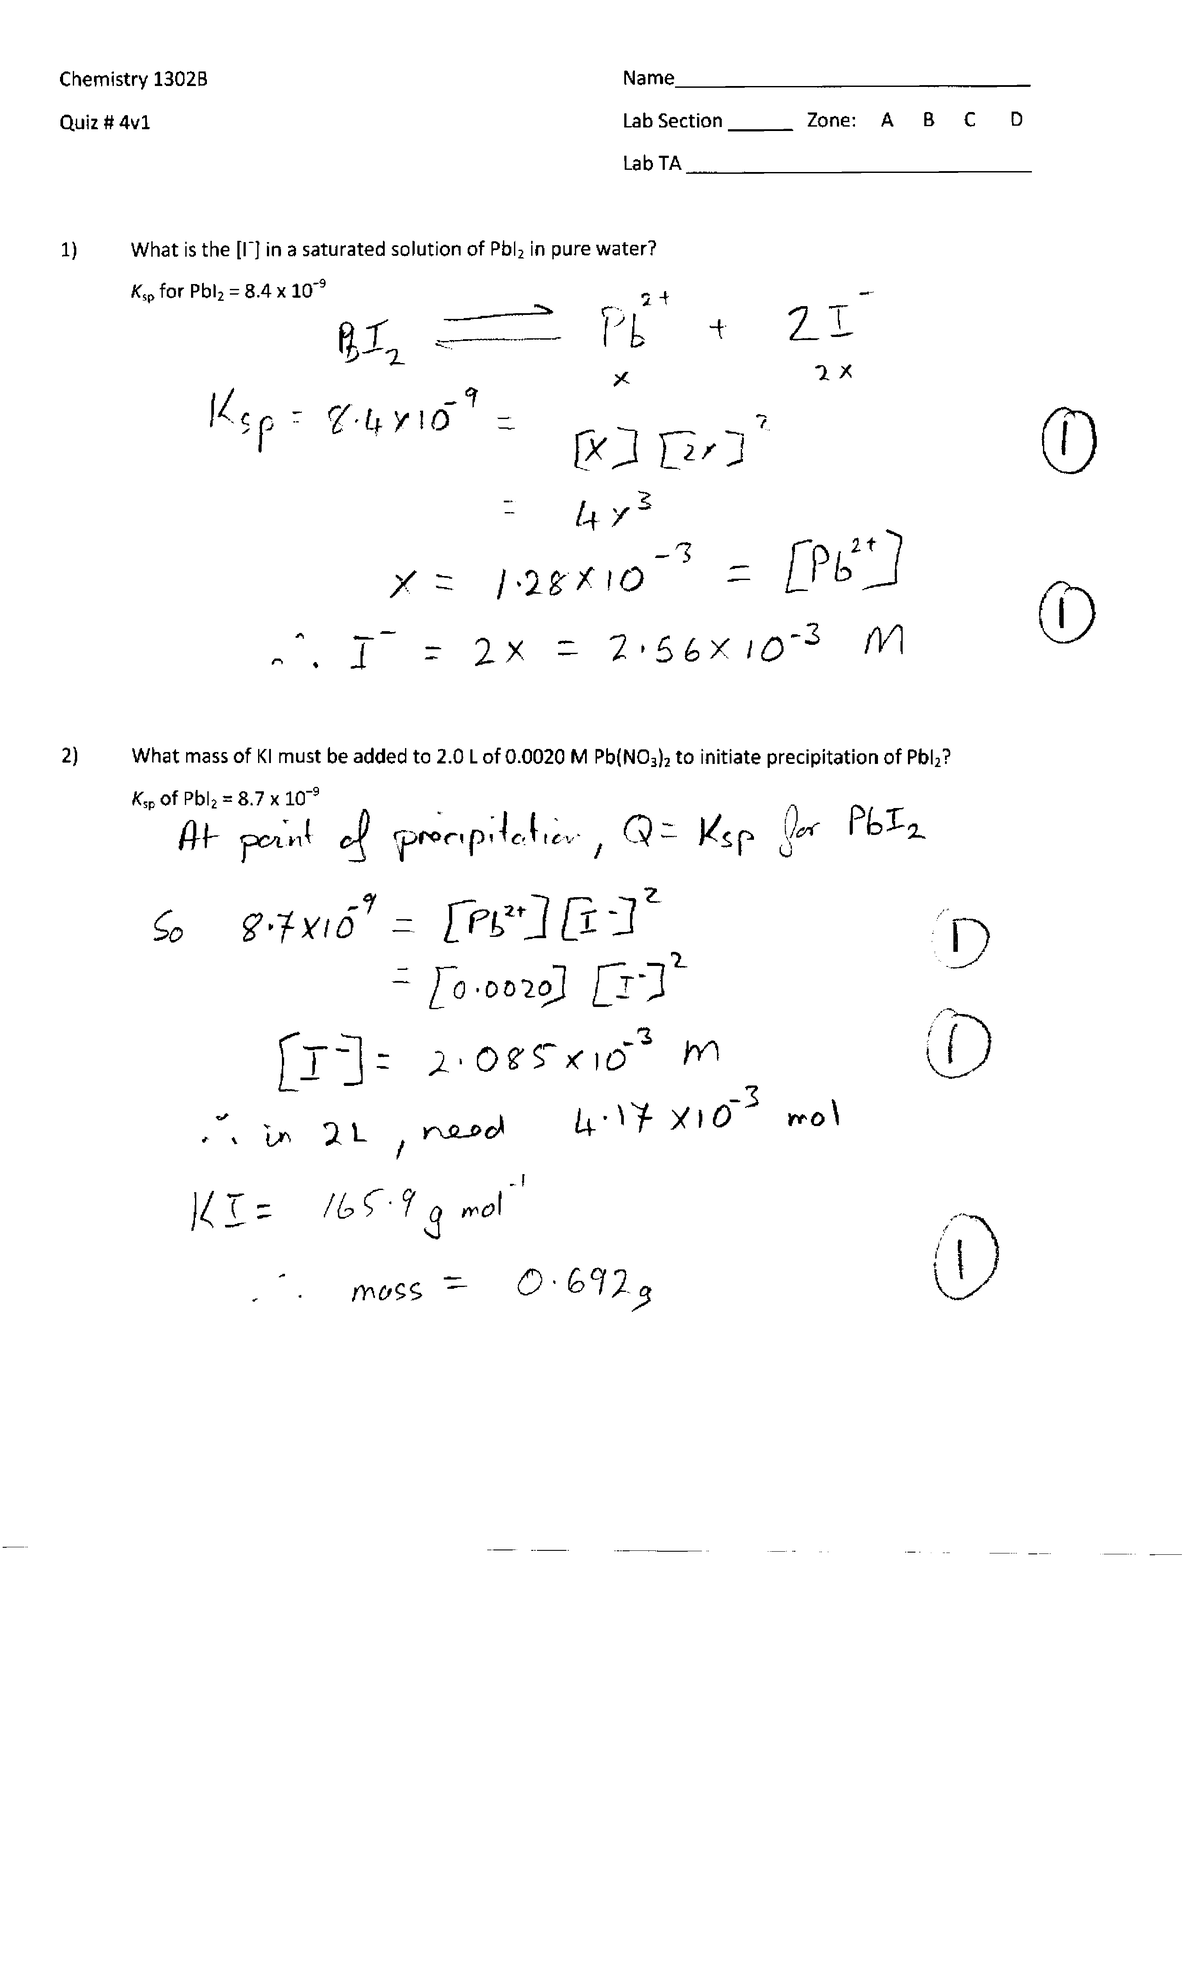 Chemistry 1302B
Name
Quiz # 4v1
Lab Section Zone: A B C D
Lab TA
1) What is the [I⁻] in a saturated solution of PbI₂ in pure water?
Kₛₚ for PbI₂ = 8.4 x 10⁻⁹
PbI₂ ⇌ Pb²⁺ + 2I⁻
x 2x
Ksp = 8.4×10⁻⁹ = [x] [2x]² ①
= 4x³
x = 1.28×10⁻³ = [Pb²⁺]
∴ I⁻ = 2x = 2.56×10⁻³ M ①
2) What mass of KI must be added to 2.0 L of 0.0020 M Pb(NO₃)₂ to initiate precipitation of PbI₂?
Kₛₚ of PbI₂ = 8.7 x 10⁻⁹
At point of precipitation, Q = Ksp for PbI₂
So 8.7×10⁻⁹ = [Pb²⁺][I⁻]² ①
= [0.0020] [I⁻]²
[I⁻] = 2.085×10⁻³ M ①
∴ in 2L, need 4.17×10⁻³ mol
KI = 165.9 g mol⁻¹
∴ mass = 0.692g ①